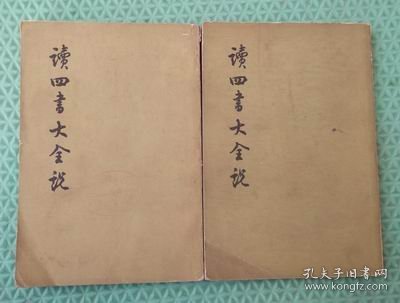 讀四書大全說
讀四書大全說
孔夫子旧书网
www.kongfz.com